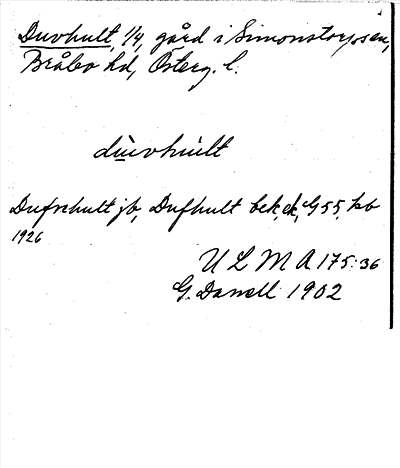 Duvhult, 1/4, gård i Simonstorps sn,
Bråbo hd, Österg. l.
dùvhult
Dufvehult jb, Dufhult bek, ek, G55, kb
1926
U L M A 175:36
G. Danell 1902